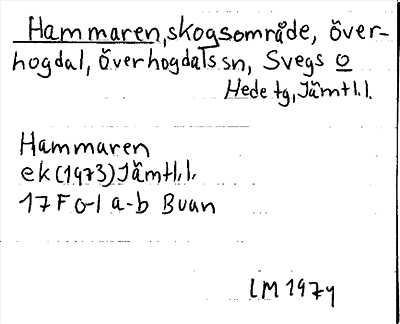 Hammaren, skogsområde, Över-
hogdal, Överhogdals sn, Svegs o
Hede tg, Jämtl.l.
Hammaren
ek (1973) Jämtl.l.
17 F 0-1 a-b Buan
LM 1974